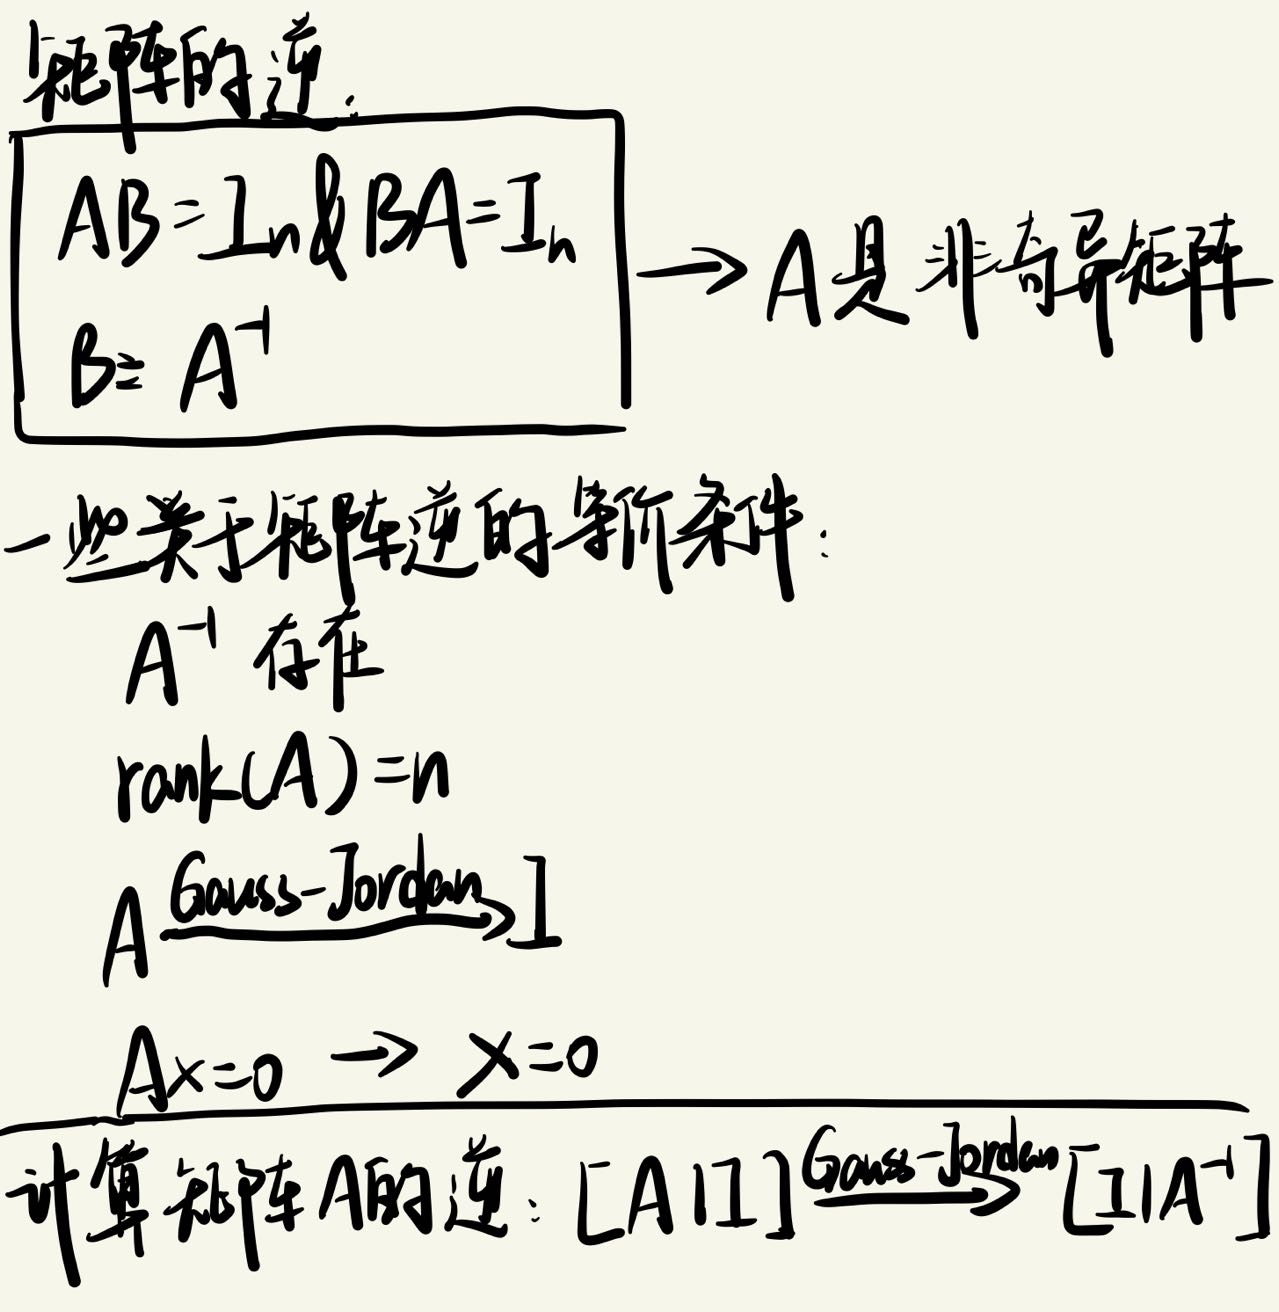 矩阵的逆:
AB=Iₙ & BA=Iₙ → A是非奇异矩阵
B≡A⁻¹
一些关于矩阵逆的等价条件:
A⁻¹ 存在
rank(A)=n
A Gauss-Jordan→ I
Ax=0 → x=0
计算矩阵A的逆: [A|I] Gauss-Jordan→ [I|A⁻¹]